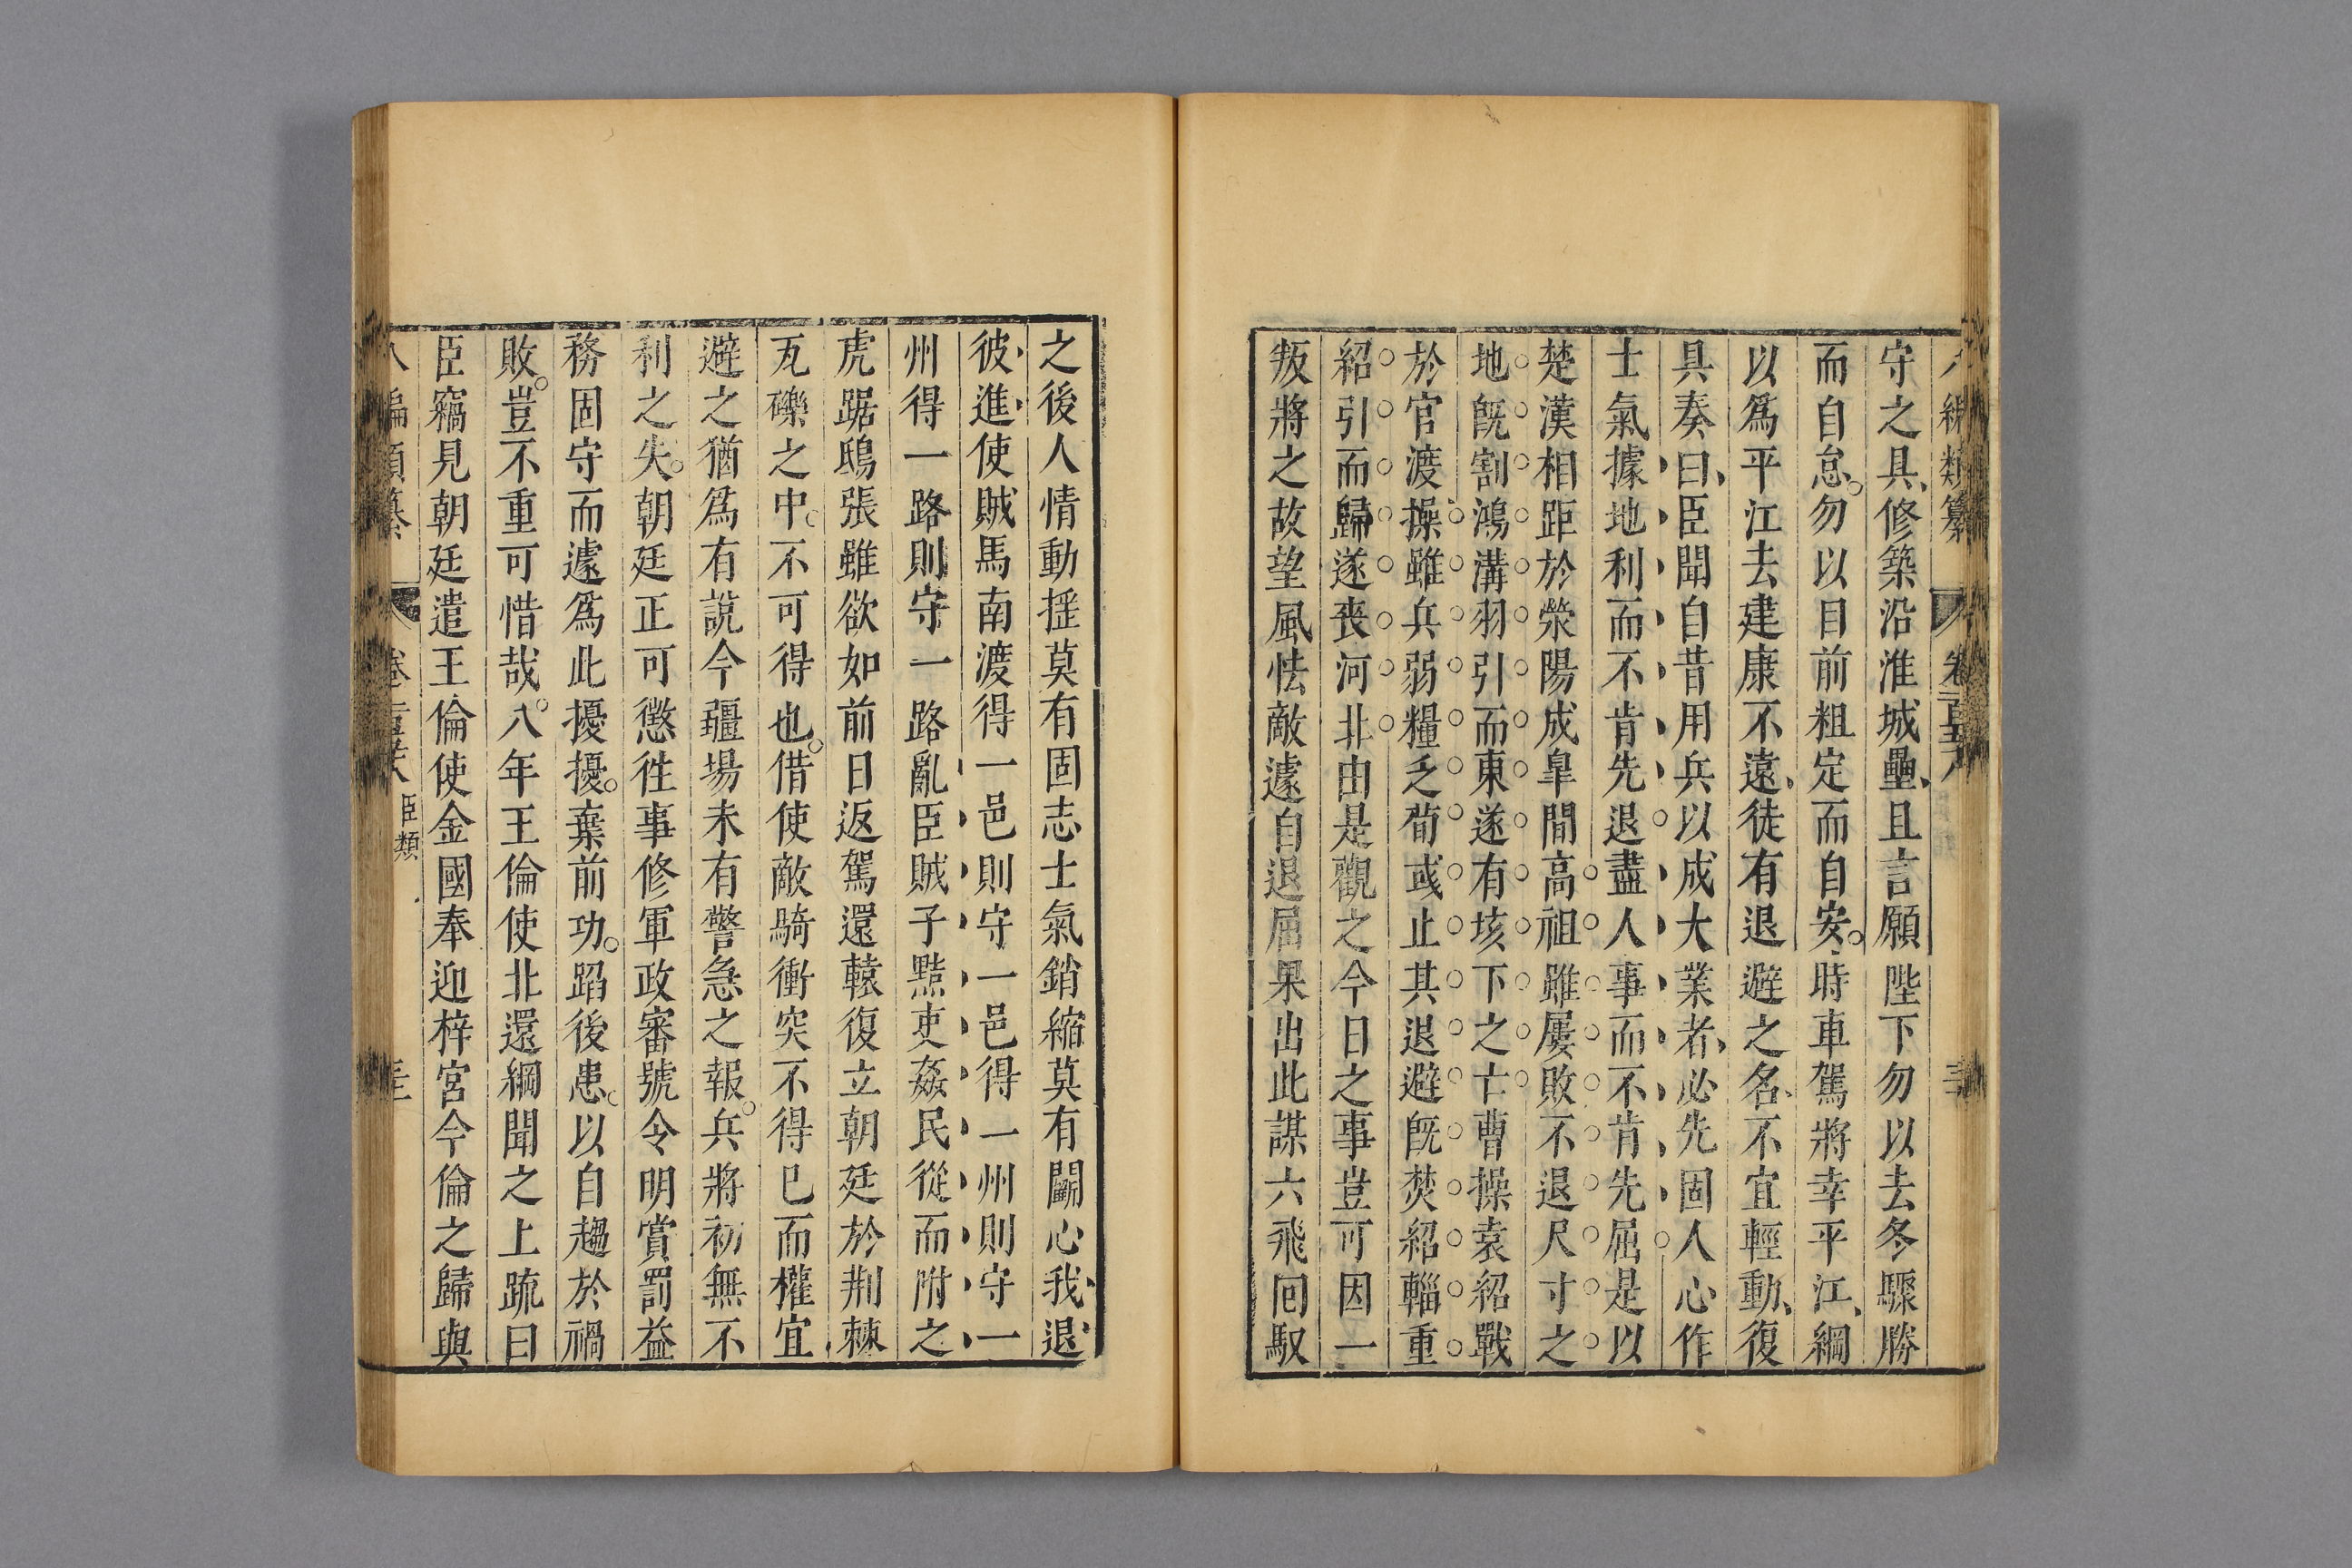 守之具修築沿淮城壘且言願陛下勿以去冬驟勝
而自怠勿以目前粗定而自安時車駕將幸平江綱
以爲平江去建康不遠徒有退避之名不宜輕動復
具奏曰臣聞自昔用兵以成大業者必先固人心作
士氣據地利而不肯先退盡人事而不肯先屈是以
楚漢相距於滎陽成臯間高祖雖屢敗不退尺寸之
地旣割鴻溝羽引而東遂有垓下之亡曹操袁紹戰
於官渡操雖兵弱糧乏荀彧止其退避旣焚紹輜重
紹引而歸遂喪河北由是觀之今日之事豈可因一
叛將之故望風怯敵遽自退屈果出此謀六飛囘馭
之後人情動搖莫有固志士氣銷縮莫有鬬心我退
彼進使賊馬南渡得一邑則守一邑得一州則守一
州得一路則守一路亂臣賊子黠吏姦民從而附之
虎踞鴟張雖欲如前日返駕還轅復立朝廷於荆棘
瓦礫之中不可得也借使敵騎衝突不得已而權宜
避之猶爲有說今疆場未有警急之報兵將初無不
利之失朝廷正可懲徃事修軍政審號令明賞罰益
務固守而遽爲此擾擾棄前功蹈後患以自趨於禍
敗豈不重可惜哉八年王倫使北還綱聞之上疏曰
臣竊見朝廷遣王倫使金國奉迎梓宮今倫之歸與
編類纂 卷 臣類